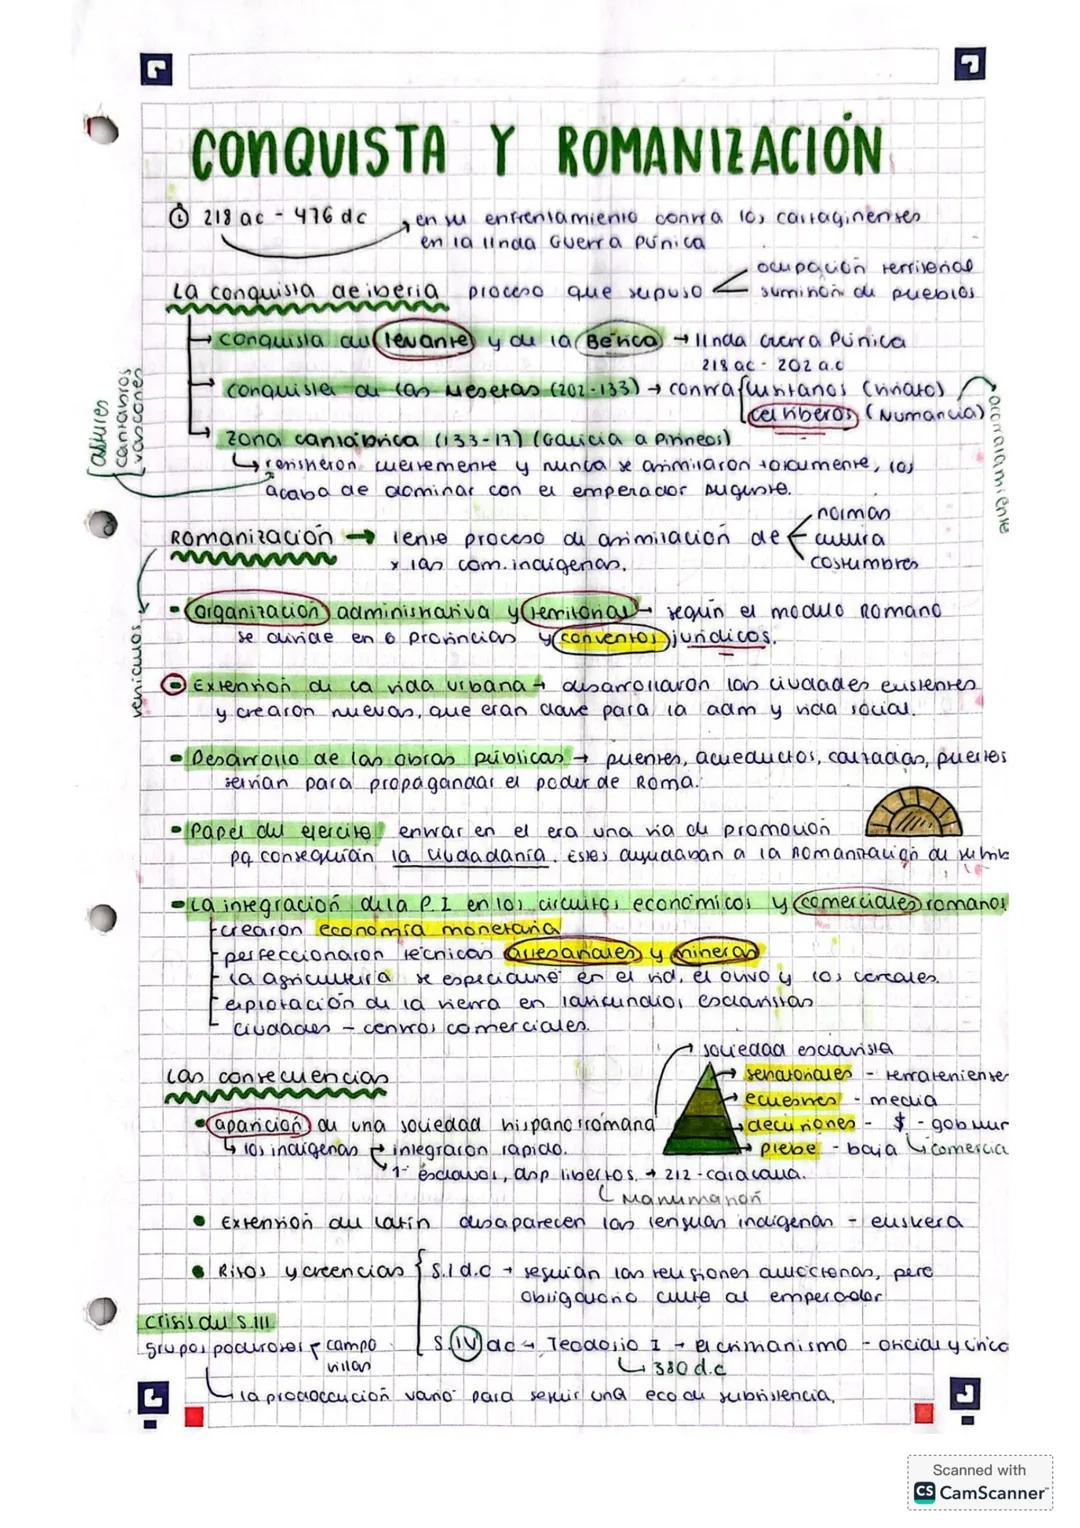 CONQUISTA Y ROMANIZACIÓN
218 ac - 476 dc
en su enfrentamiento contra los cartaginenses
en la IInda Guerra Púnica
La conquista de iberia proceso que supuso
ocupación territorial
suminón de pueblos
conquista du levante y de la Bética → IInda Guerra Púnica
218 ac - 202 a.c
conquista de las Mesetas (202-133) → contra lusitanos (Viriato)
celtiberos (Numancia)
acorralamiento
astures
cantabros
vascones
Zona cantábrica (133-17) (Galicia a Pirineos)
resistieron fuertemente y nunca se asimilaron totalmente, los
acaba de dominar con el emperador Augusto.
Romanización → lento proceso de asimilación de
x las com. indígenas.
normas
cultura
costumbres
vehículos
• organización administrativa y territorial → según el modulo Romano
se divide en 6 provincias y conventos jurídicos.
• Extensión de la vida urbana → desarrollaron las ciudades existentes
y crearon nuevas, que eran clave para la adm y vida social.
• Desarrollo de las obras públicas → puentes, acueductos, calzadas, puertos
servían para propagandar el poder de Roma.
• Papel du ejercito entrar en el era una via de promoción
pq conseguían la ciudadanía. Estos ayudaban a la Romanización de
• La integración de la P.I en los circuitos económicos y comerciales romanos
crearon economía monetaria
perfeccionaron técnicas artesanales y mineras
la agricultura se especializó en el vid, el olivo y los cereales.
explotación de la tierra en latifundios esclavistas
ciudades - centros comerciales.
Las consecuencias
sociedad esclavista
senatoriales - terrateniente
ecuestres - media
decuriones - $ - gob mur
comercia
plebe - baja
• aparición de una sociedad hispanorromana
los indígenas integraron rapido.
1º esclavos, dsp libertos. → 212 - caracalla.
Manumisión
• Extensión du Latín desaparecen las lenguas indígenas - euskera
• Ritos y creencias
S.I d.C → seguían las religiones autóctonas, pero
obligatorio culto al emperador
S. IV dc → Teodosio I → El cristianismo - oficial y único
380 d.c
crisis du S.III
grupos poderosos campo
villas
la producción varió para seguir una eco de subsistencia.
Scanned with
CS CamScanner